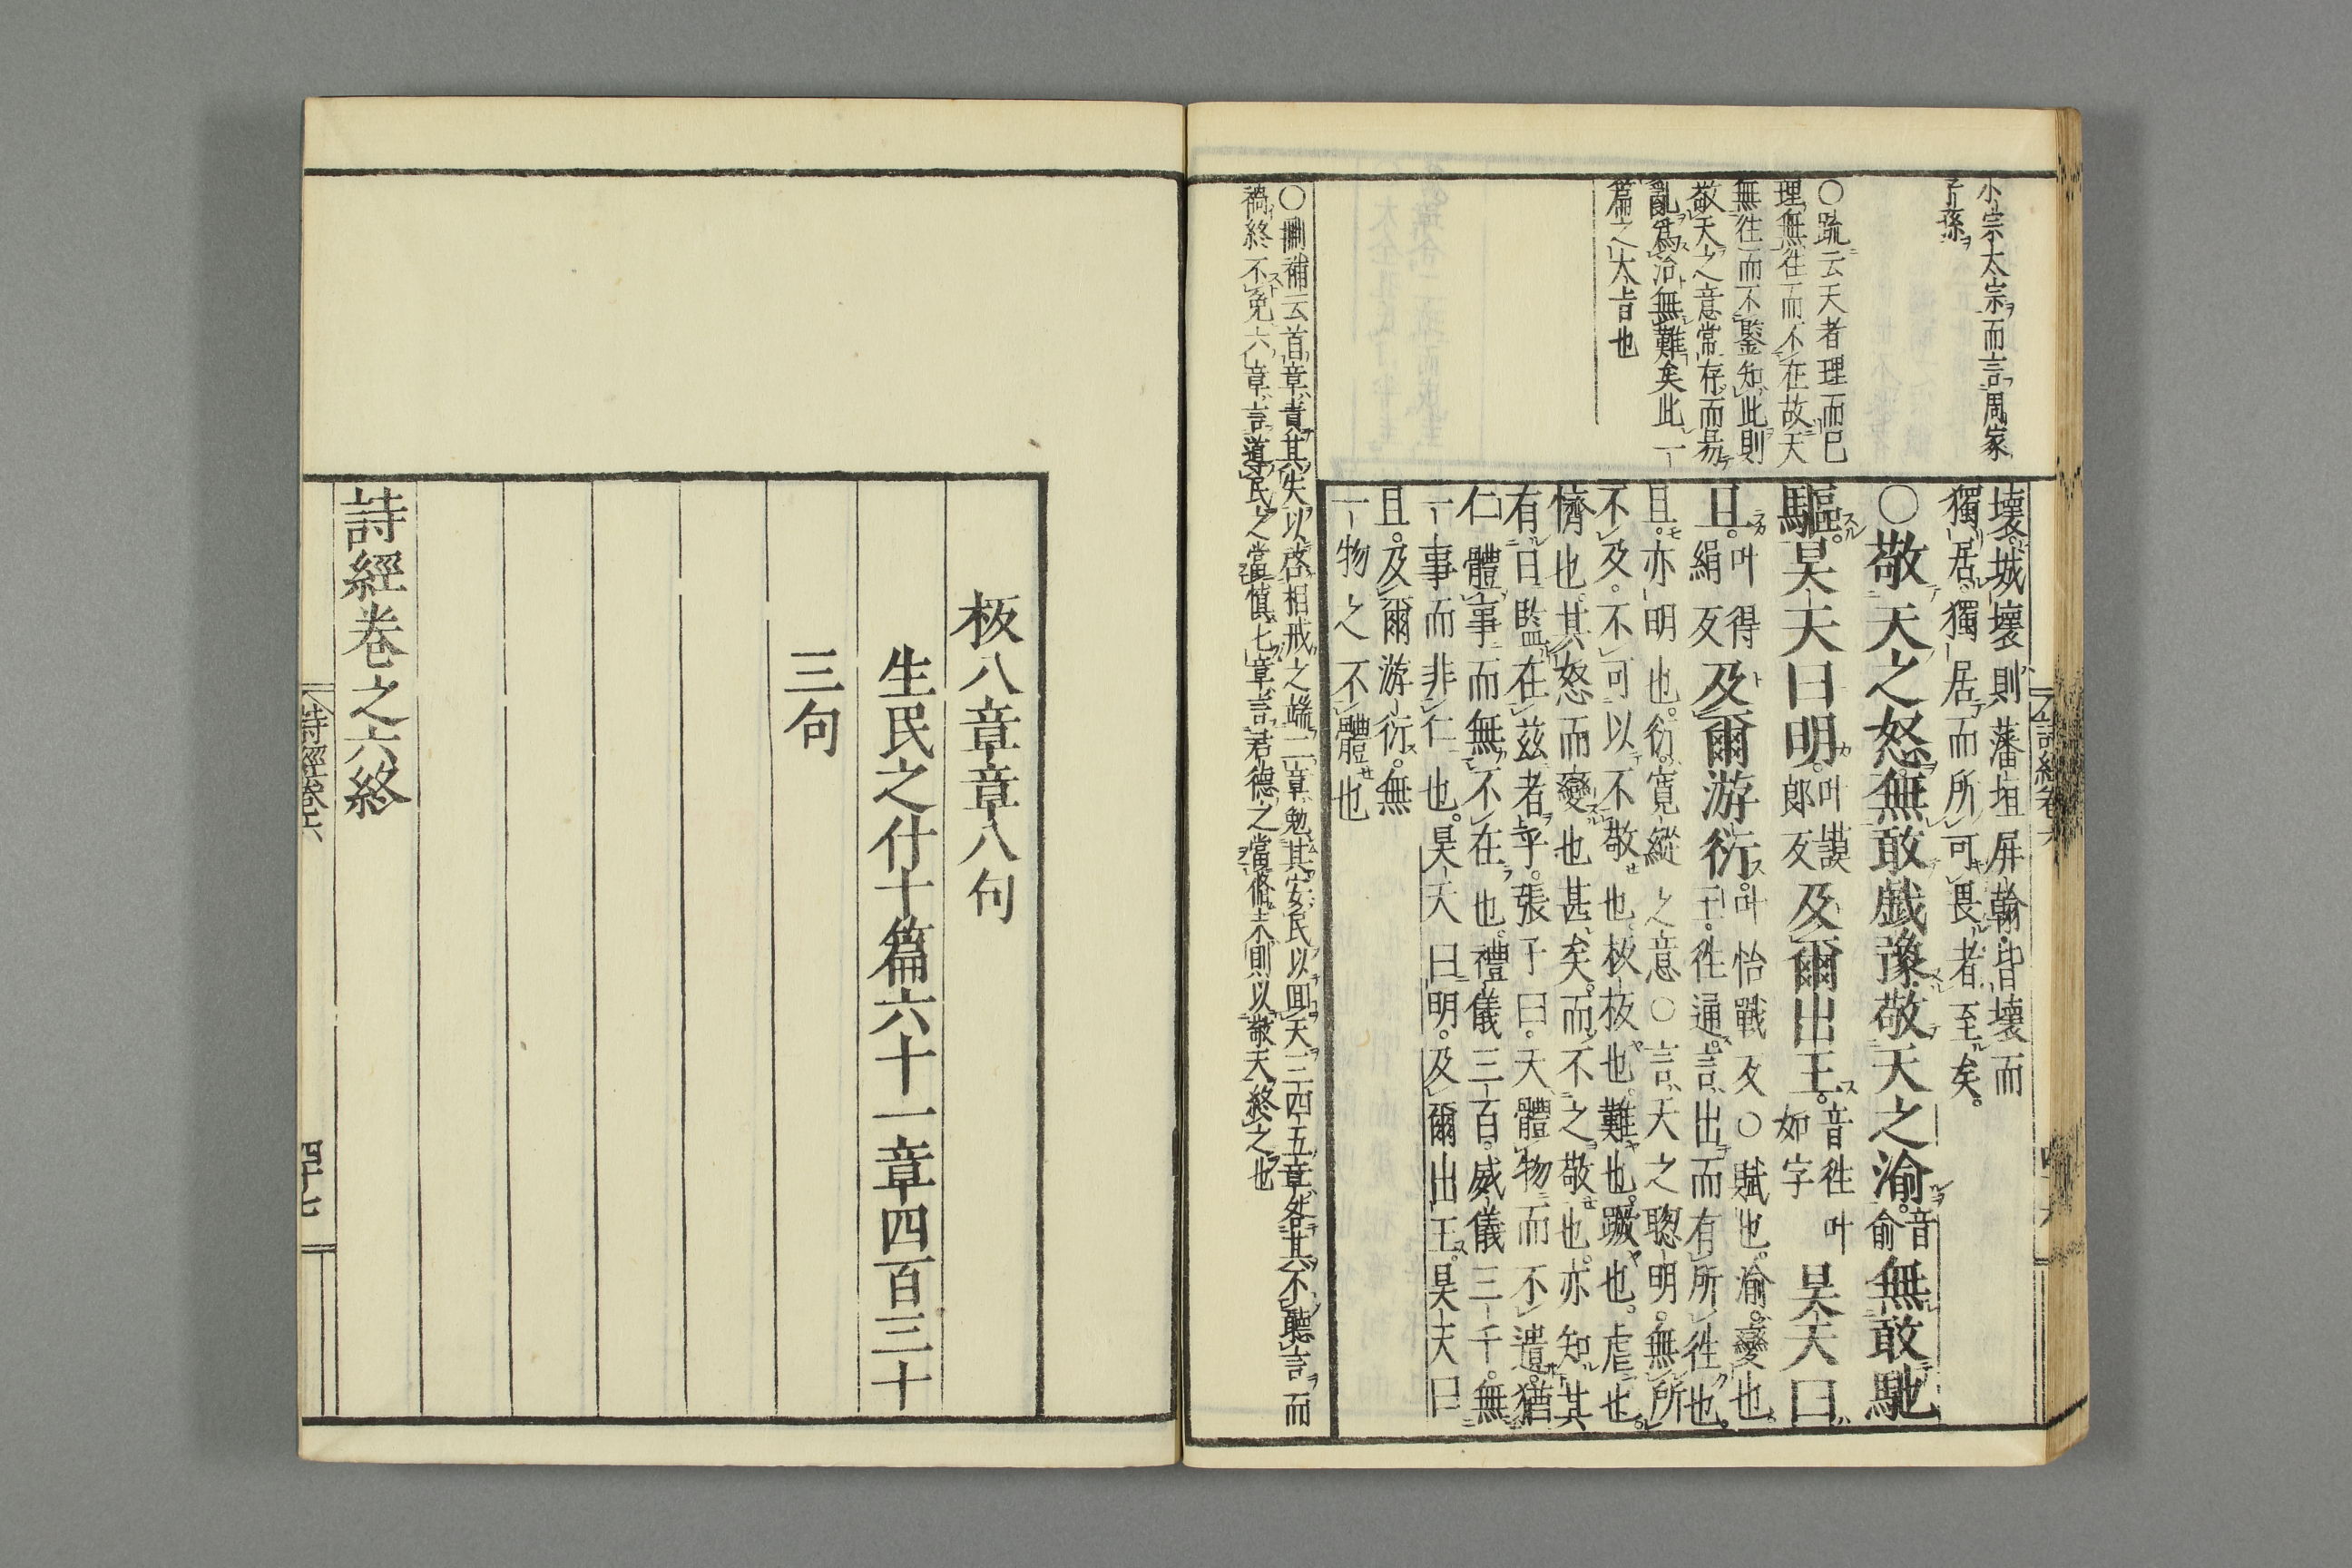 小宗太宗而言周家
子孫
○疏云天者理而巳
理無徃而不在故天
無徃而不鑒知此則
敬天之意常存而易
亂爲治無難矣此一
篇之大旨也
壞城壞則藩垣屏翰皆壞而
獨居獨居而所可畏者至矣。
○敬天之怒無敢戲豫敬天之渝。音俞無敢馳
驅。昊天曰明。叶謨郎反及爾出王。音徃叶如字昊天曰
旦。叶得絹反及爾游衍。叶怡戰反○賦也。渝。變也。
王。徃通。言出而有所徃也。
旦。亦明也。衍。寬縱之意○言天之聰明。無所
不及。不可以不敬也。板板也。難也。蹶也。虐也。
懠也。其怒而變也甚矣。而不之敬也。亦知其
有日監在茲者乎。張子曰。天體物而不遺。猶
仁體事而無不在也。禮儀三百。威儀三千。無
一事而非仁也。昊天曰明。及爾出王。昊天曰
旦。及爾游衍。無
一物之不體也
○刪補云首章責其失以啓相戒之端二章勉其安民以回天三四五章咎其不聽言而
禍終不免六章言導民之當愼七章言君德之當脩末則以敬天終之也
詩經卷六
板八章章八句
生民之什十篇六十一章四百三十
三句
詩經卷之六終
詩經卷六
四十七